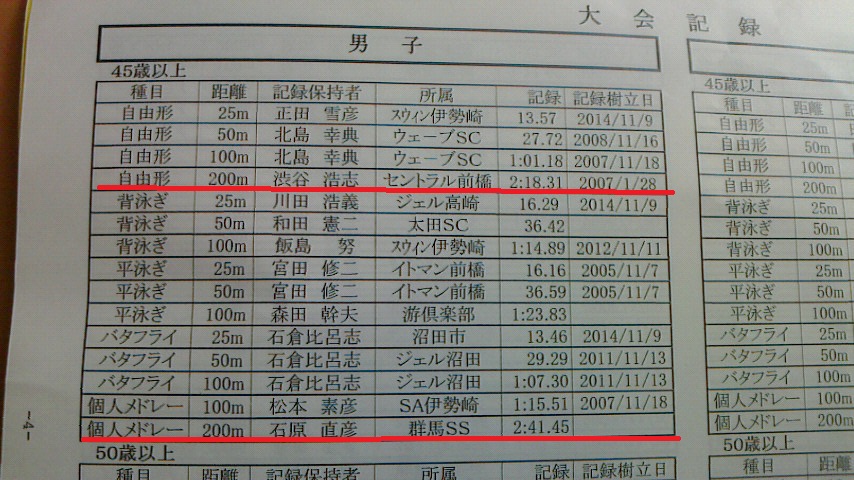 大会記録
男子
45歳以上
種目 距離 記録保持者 所属 記録 記録樹立日
自由形 25m 正田 雪彦 スウィン伊勢崎 13.57 2014/11/9
自由形 50m 北島 幸典 ウェーブSC 27.72 2008/11/16
自由形 100m 北島 幸典 ウェーブSC 1:01.18 2007/11/18
自由形 200m 渋谷 浩志 セントラル前橋 2:18.31 2007/1/28
背泳ぎ 25m 川田 浩義 ジェル高崎 16.29 2014/11/9
背泳ぎ 50m 和田 憲二 太田SC 36.42
背泳ぎ 100m 飯島 努 スウィン伊勢崎 1:14.89 2012/11/11
平泳ぎ 25m 宮田 修二 イトマン前橋 16.16 2005/11/7
平泳ぎ 50m 宮田 修二 イトマン前橋 36.59 2005/11/7
平泳ぎ 100m 森田 幹夫 游倶楽部 1:23.83
バタフライ 25m 石倉比呂志 沼田市 13.46 2014/11/9
バタフライ 50m 石倉比呂志 ジェル沼田 29.29 2011/11/13
バタフライ 100m 石倉比呂志 ジェル沼田 1:07.30 2011/11/13
個人メドレー 100m 松本 素彦 SA伊勢崎 1:15.51 2007/11/18
個人メドレー 200m 石原 直彦 群馬SS 2:41.45
50歳以上
種目 距離 記録保持者 所属 記録 記録樹立日
-4-
45歳以上
種目 距離
自由形 25m
自由形 50m
自由形 100m
自由形 200m
背泳ぎ 25m
背泳ぎ 50m
背泳ぎ 100m
平泳ぎ 25m
平泳ぎ 50m
平泳ぎ 100m
バタフライ 25m
バタフライ 50m
バタフライ 100m
個人メドレー 100m
個人メドレー 200m
50歳以上
種目 距離